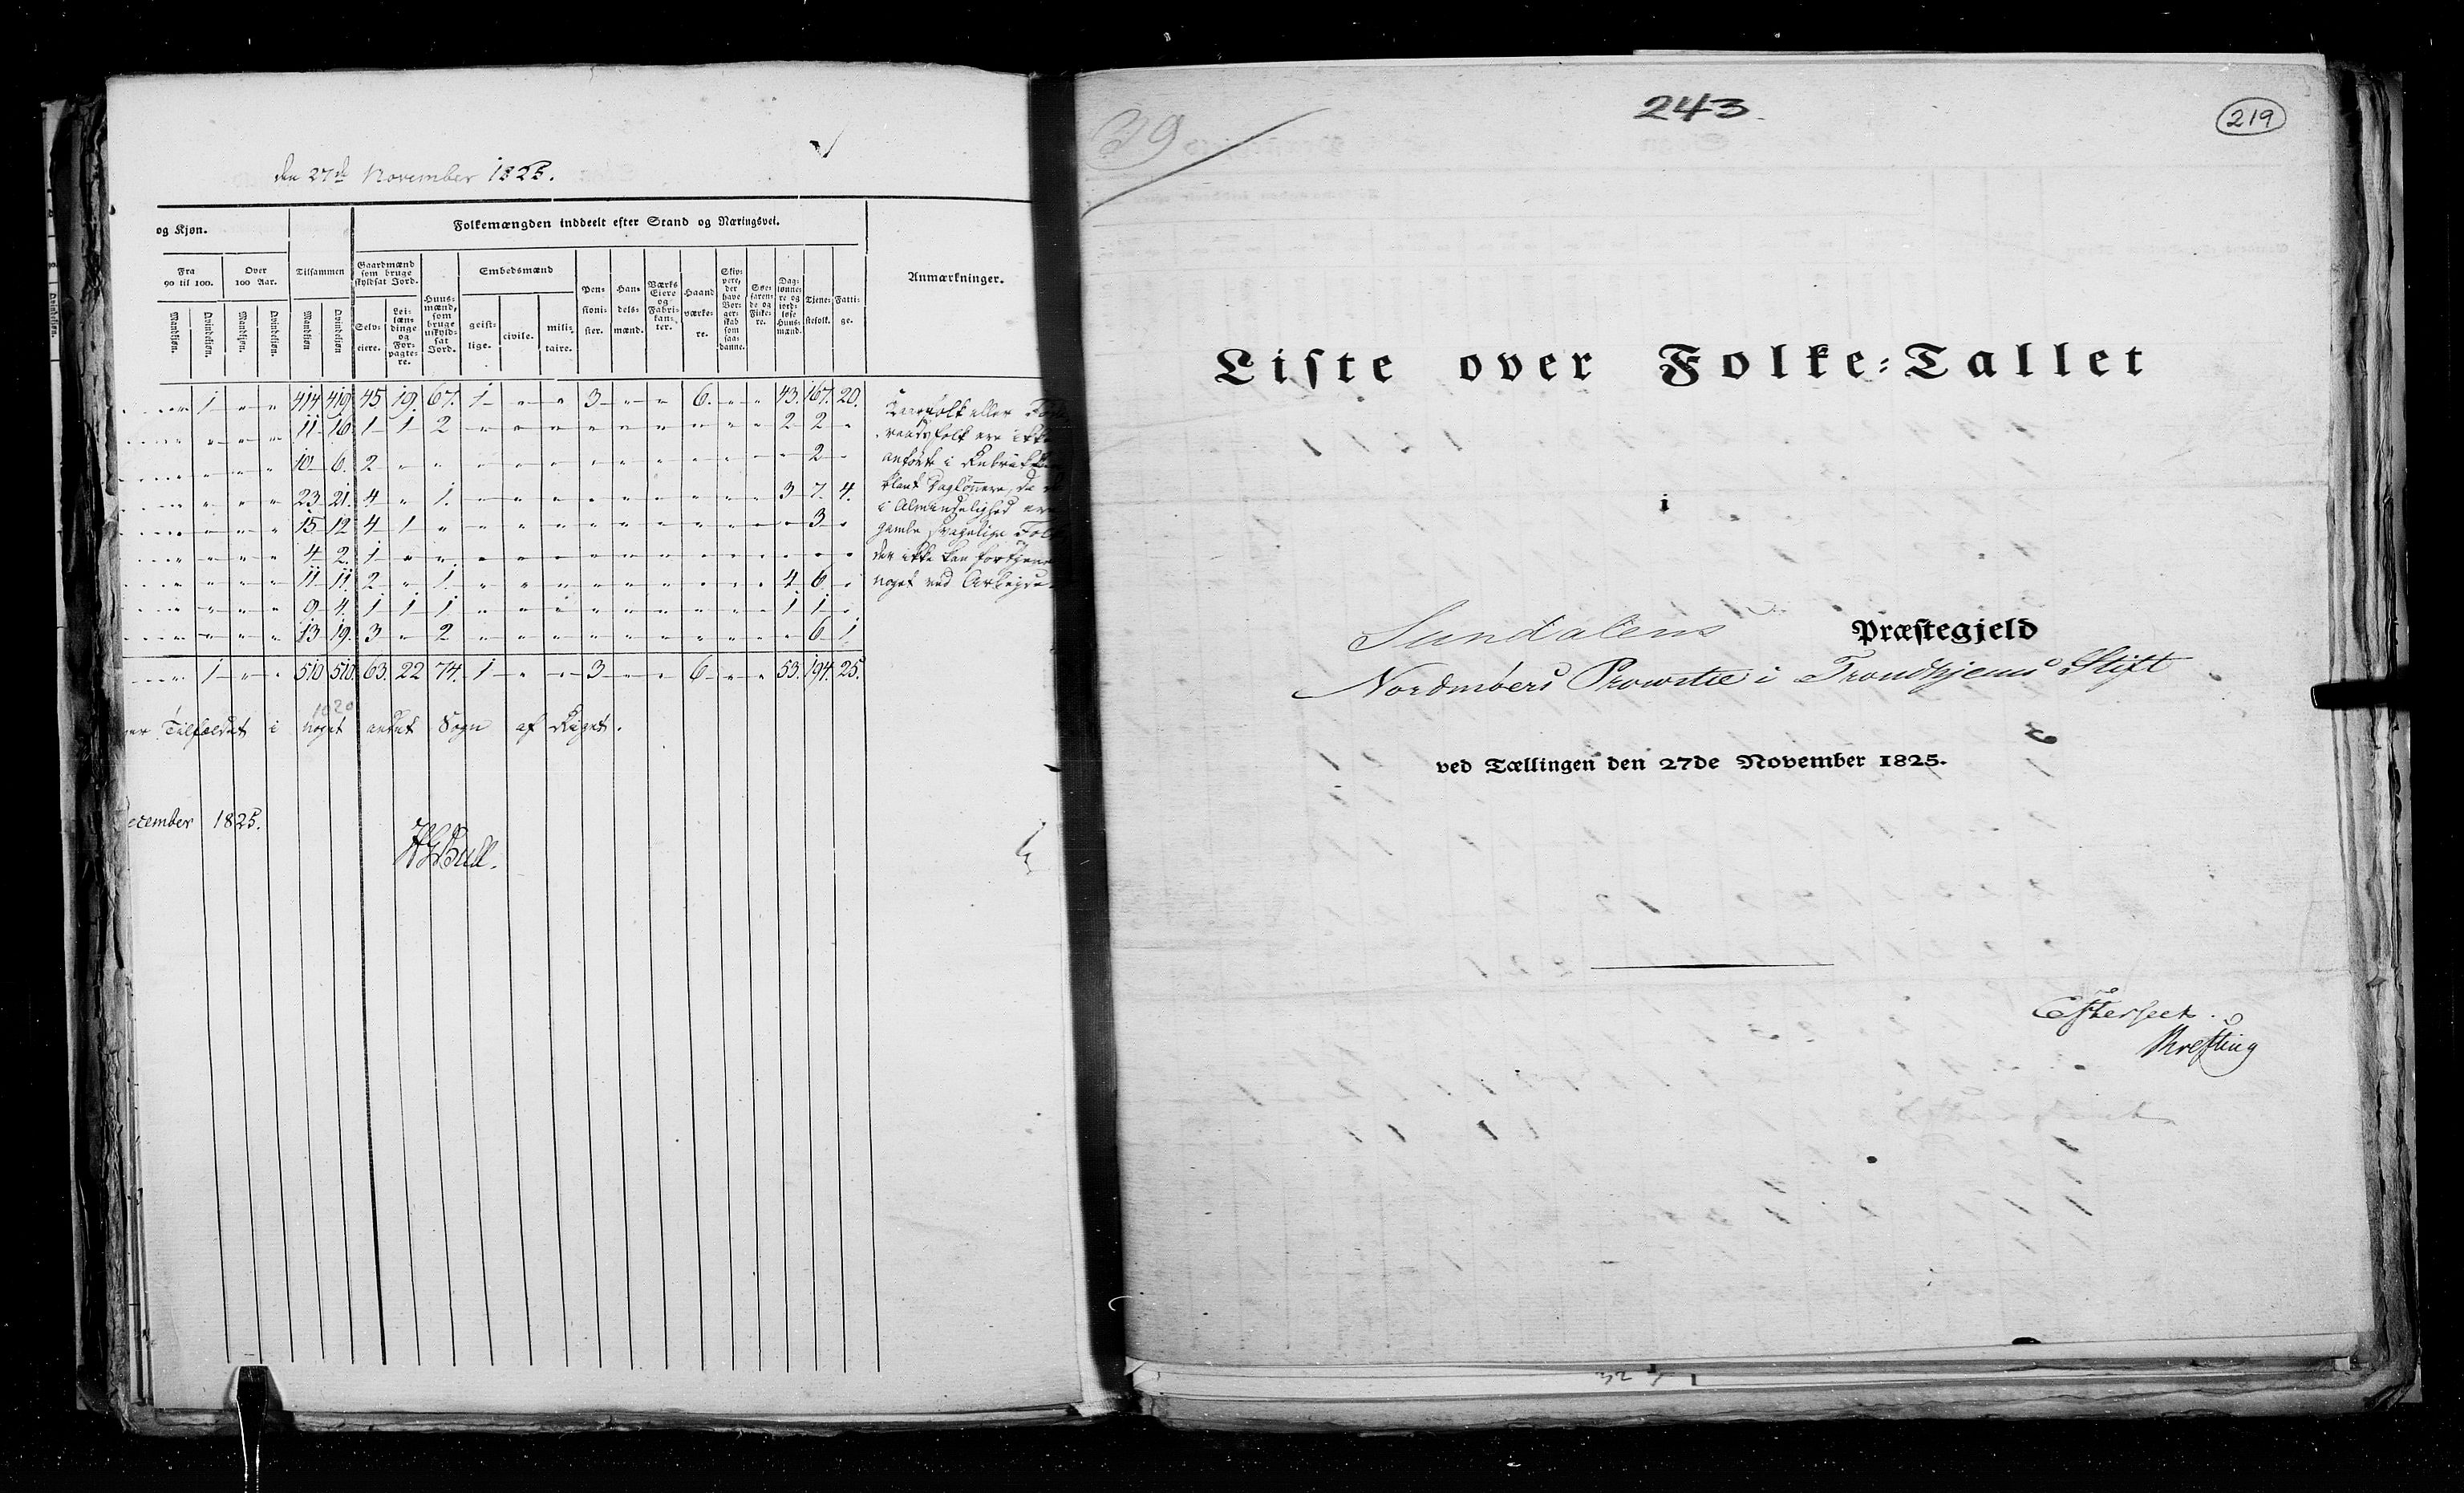 den 27de November 1825.
og Kjøn.
Folkemængden inddeelt efter Stand og Næringsvei.
Fra 90 til 100.
Over 100 Aar.
Tilsammen
Gaardmænd som bruge skyldsat Jord.
Huusmænd, som bruge uskyldsat Jord.
Embedsmænd
Pensionister.
Handelsmænd.
Værks Eiere og Fabrikanter.
Haandværkere.
Skippere, der have Borgerskab som saadanne.
Søefarende og Fiskere.
Daglønnere og jordløse Huusmænd.
Tjenestefolk.
Fattige.
Anmærkninger.
Mandkiøn. Qvindekiøn. Mandkiøn. Qvindekiøn. Mandkiøn Qvindekiøn
Selveiere. Leilændinge og Forpagtere.
geistlige. civile. militaire.
1 " " 414 419 45. 19. 67. 1 " " 3 " " 6. " " 43. 167. 20.
" " " 11 16 1 1 2 " " " " " " " " " 2 2 "
" " " 10 6. 2 " " " " " " " " " " " " 2 "
" " " 23 21. 4 " 1. " " " " " " " " " 3 7. 4.
" " " 15 12 4 1 " " " " " " " " " " " 3 "
" " " 4 2. 1 " " " " " " " " " " " " " "
" " " 11 11. 2 " 1. " " " " " " " " " 4 6 "
" " " 9 4. 1 1 1 " " " " " " " " " 1 1 "
" " " 13 19. 3 " 2 " " " " " " " " " " 6 1
1 " " 510 510. 63. 22 74. 1 " " 3 " " 6 " " 53. 194. 25.
1020
Kaarfolk eller
raadsfolk ere ikke
anførte i
blant Daglønnere, da
i Almindelighed ere
gamle svagelige Folk
der ikke kan fortjene
noget ved Arbeide.
Tilfældet i noget andet Sogn af Riget.
ecember 1825.
Bull.
39
243
219
Liste over Folke=Tallet
i
Sundalens Præstegjeld
Nordmøers Provstie i Trondhjems Stift
ved Tællingen den 27de November 1825.
Efterseet.